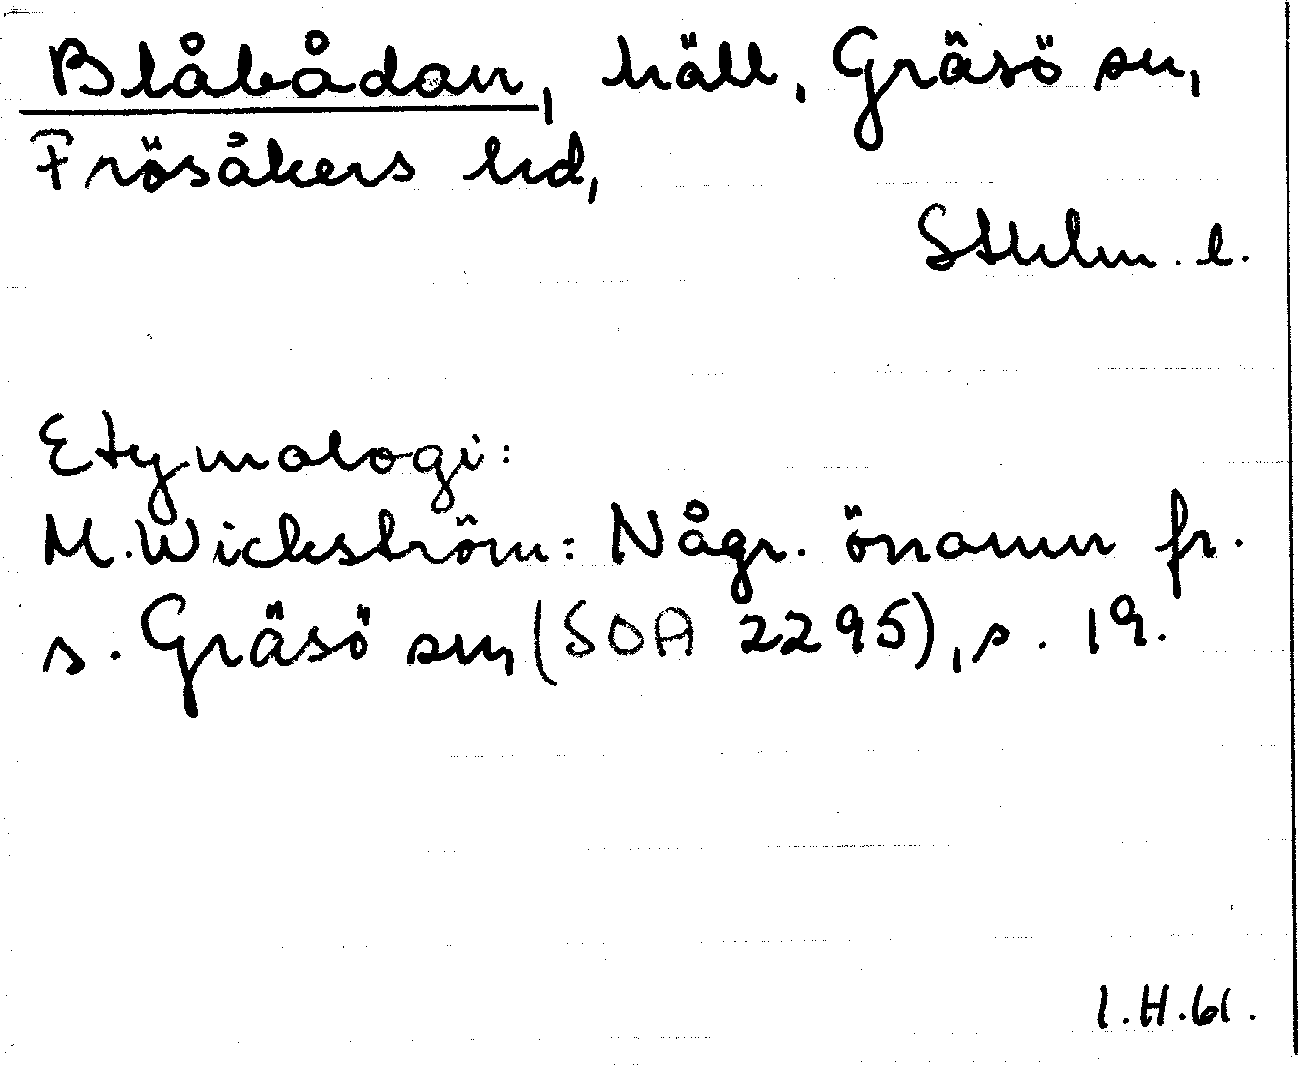 Blåbådan, häll, Gräsö sn,
Frösåkers hd,
Sthlm. l.
Etymologi:
M. Wickström: Någr. önamn fr.
s. Gräsö sn, (SOA 2295), s. 19.
I.H.61.